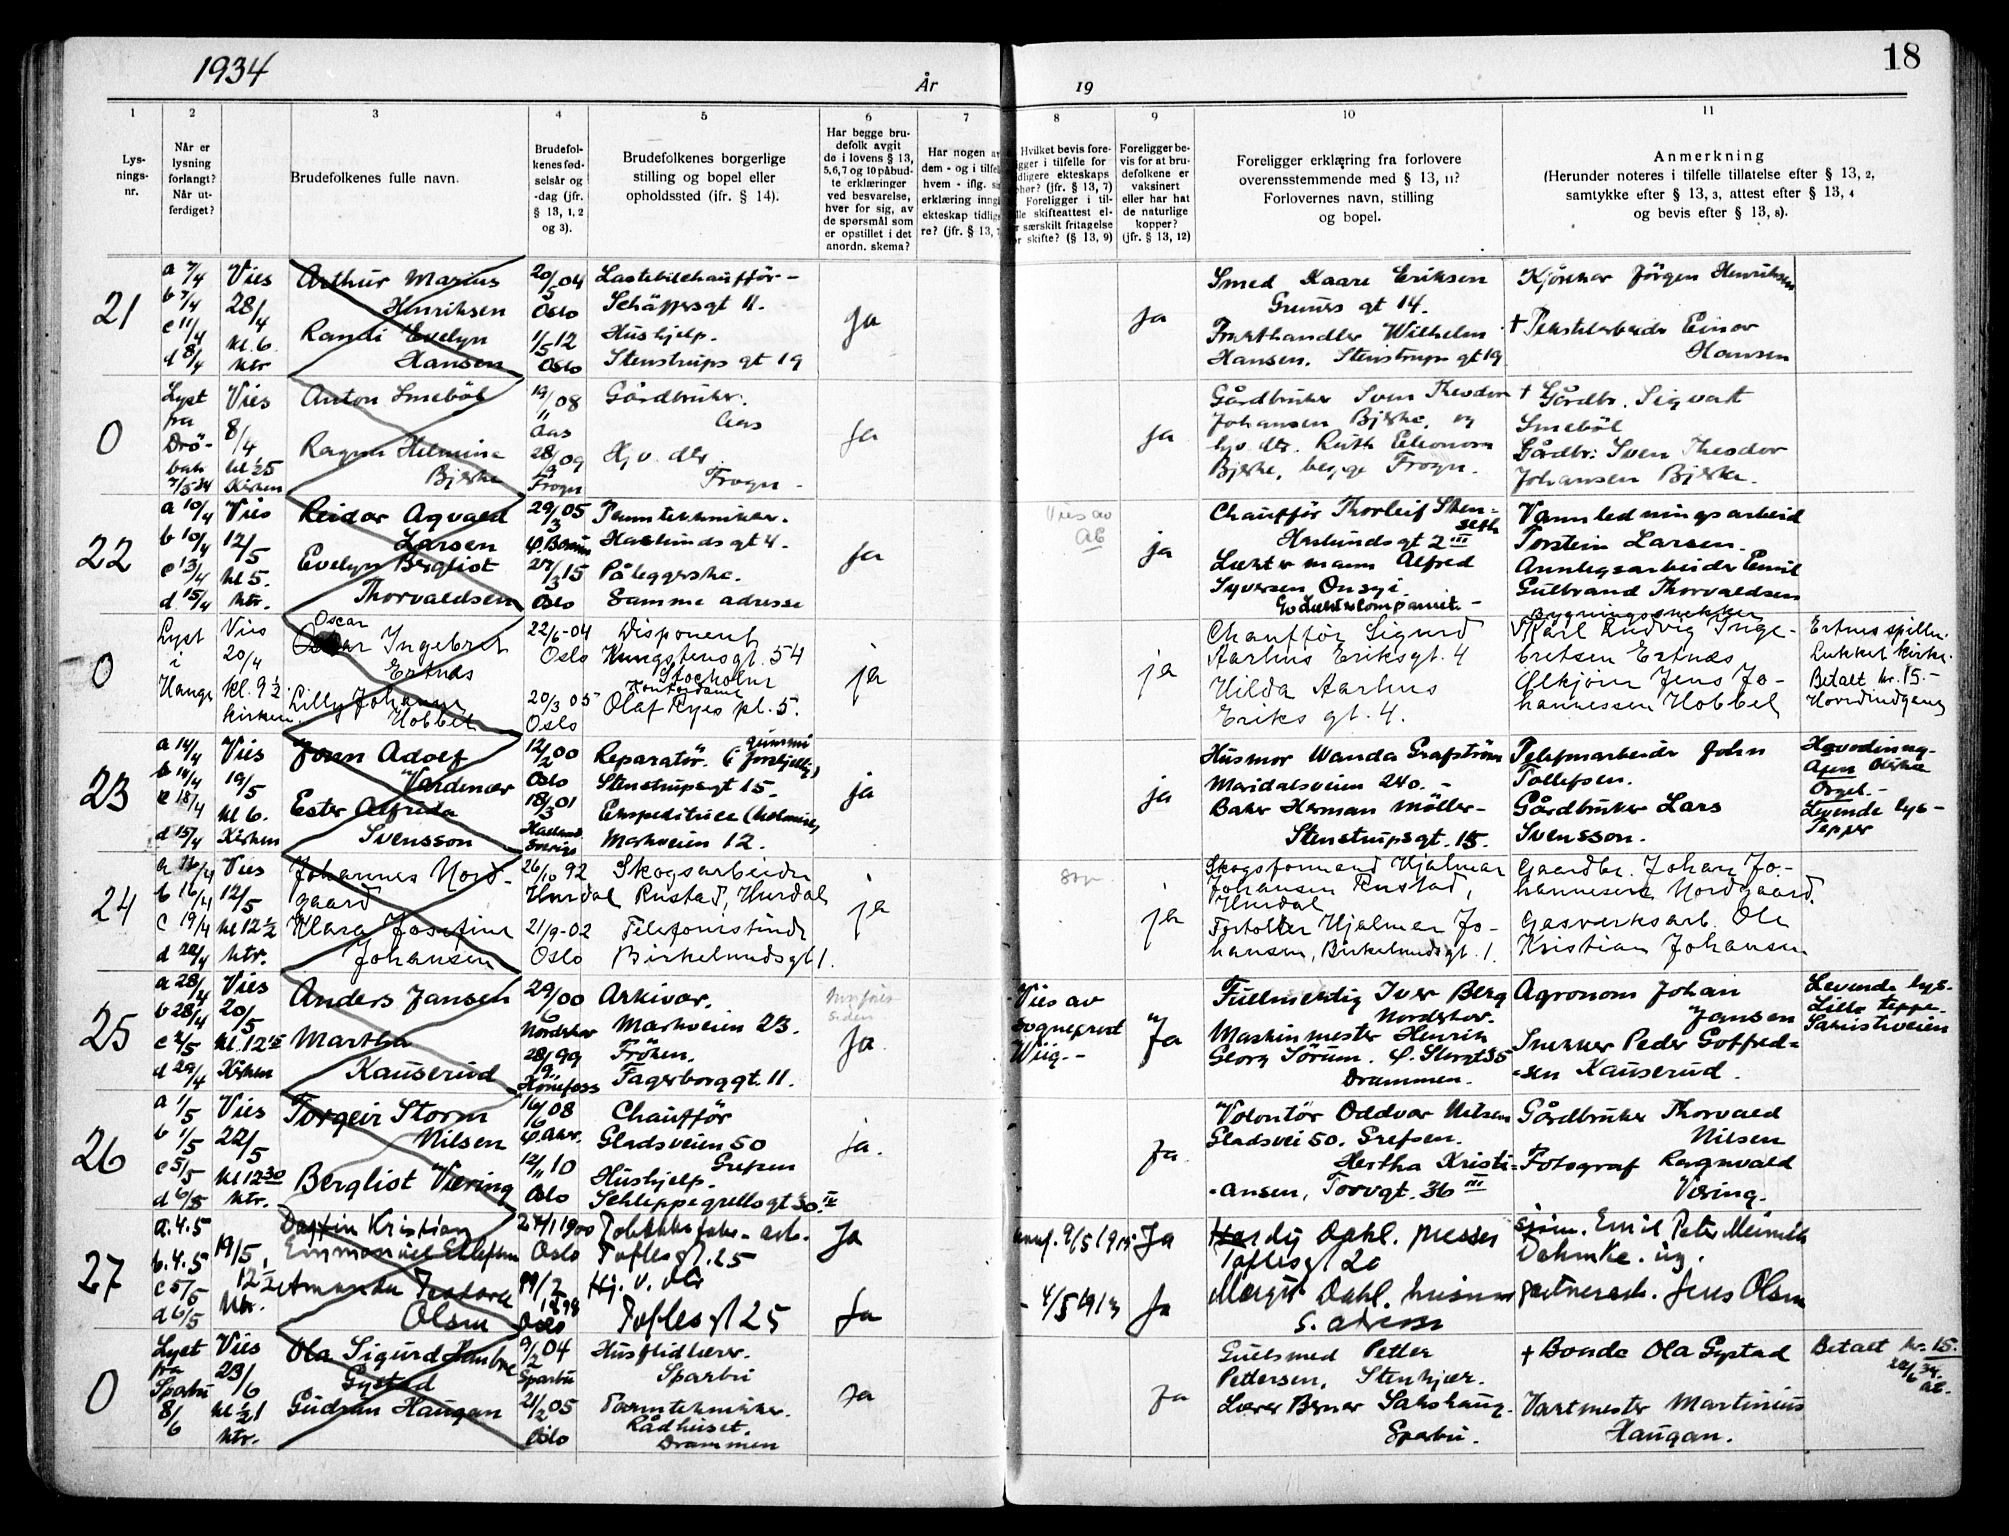 1934
År
19
18
1
2
3
4
5
6
7
8
9
10
11
Lys-
nings-
nr.
Når er
lysning
forlangt?
Når ut-
ferdiget?
Brudefolkenes fulle navn.
Brudefol-
kenes fød-
selsår og
-dag (jfr.
§ 13, 1, 2
og 3).
Brudefolkenes borgerlige
stilling og bopel eller
opholdssted (jfr. § 14).
Har begge bru-
defolk avgit
de i lovens § 13,
5,6,7 og 10 påbud-
te erklæringer
ved besvarelse,
hver for sig, av
de spørsmål som
er opstillet i det
anordn. skema?
Har nogen
dem - og i
hvem - iflg.
erklæring
ekteskap
re? (jfr. § 13,
Hvilket bevis fore-
i tilfelle for
ekteskaps
(jfr. § 13, 7)
Foreligger i til-
skifteattest el-
særskilt fritagelse
skifte? (§ 13, 9)
Foreligger be-
vis for at bru-
defolkene er
vaksinert
eller har hat
de naturlige
kopper?
(jfr. § 13, 12)
Foreligger erklæring fra forlovere
overensstemmende med § 13, 11?
Forlovernes navn, stilling
og bopel.
Anmerkning
(Herunder noteres i tilfelle tillatelse efter § 13, 2,
samtykke efter § 13, 3, attest efter § 13, 4
og bevis efter § 13, 8).
21
a 7/4 Vies Arthur Marius 20/5 04 Lastebilchauffør-
b 7/4 28/4 Henriksen Oslo Schäffersgt 11.
c 11/4 kl. 6. Randi Evelyn 1/5 12 Hushjelp.
d 8/4 ktr Hansen Oslo Stenstrups gt 19
Ja
Ja
Smed Kaare Eriksen
gt 14.
Frukthandler Wilhelm
Hansen. Stenstrups gt 19
Kjørekar Jörgen Henriksen
† Tekstilarbeider Einar
Hansen
0
Lyst Vies Anton Smebøl 19/11 08 Gårdbruker.
fra 8/4 Aas Aas
Drö- Ragna Helmine 28/ 09 Hj. v. dtr
bak kl 5 Bjerke Frogn Frogn
7/3-34 Kirken
Ja
Ja
Gårdbruker Sven Theodor
Johansen Bjerke, og
hjv. dtr. Ruth Eleonora
Bjerke, begge Frogn.
† Gårdbr. Sigvart
Smebøl
Gårdbr: Sven Theodor
Johansen Bjerke.
22
a 10/4 Vies Reidar Agvald 29/3 05 Tanntekniker.
b 10/4 12/5 Larsen Haslunds gt 4.
c 13/4 kl 5. Evelyn Bergliot 27/3 15 Påleggerske.
d 15/4 ktr. Thorvaldsen Oslo Samme adresse
Ja
Vies av
AB
ja
Chauffør Thorleif Sten-
seth
Haslundsgt 2 III
Lektermann Alfred
Syversen Onsøi.
Lektekompaniet-
Vannledningsarbeid
Torstein Larsen.
Anleggsarbeider Emil
Gulbrand Thorvaldsen
0
Lyst Vies Oscar Ingebret 22/6-04 Disponent
i 20/4 Ertnæs Oslo Kungstensgt. 54
Hauge kl. 9 1/2 Stockholm
kirken. Lilly Johanne 20/3 05 Kontordame
Hobbel Oslo Olaf Ryes pl. 5.
ja
ja
Chauffør Sigurd
Aarhus Eriksgt. 4
Hilda Aarhus
Eriks gt. 4.
Bygningssnekker
Karl Ludvig Inge-
bretsen Ertnæs
Jens Jo-
hannessen Hobbel
Ertnes spiller.
Lukket kirke.
Betalt kr. 15.-
Hovedindgang
23
a 14/4 Vies John Adolf 12/2 00 Reparatør.
b 14/4 19/5 Vardenær Oslo Stenstrupsgt 15-
c 18/4 kl 6. Ester Alfrida 18/3 01 Ekspeditrice
d 15/4 Kirken Svensson Sverige Markveien 12.
ja
ja
Husmor Wanda Grafström
Maridalsveien 240.-
Baker Herman Möller-
Stenstrupsgt. 15.
Telefonarbeider John
Tollefsen.
Gårdbruker Lars
Svensson.
Hovedinng-
Åpen Kirke
Orgel.-
Levende lys-
Tepper
24
a 16/4 Vies Johannes Nord- 26/10 92 Skogsarbeider
b 16/4 12/5 gaard Hurdal Rustad, Hurdal
c 19/4 kl 12 1/2 Klara Josefine 21/9-02 Telefonistinde
d 20/4 ktr. Johansen Oslo Birkelundsgt 1.
ja
ja
Skogsformand Hjalmar
Johansen Rustad,
Hurdal
Fortolker Hjalmar Jo-
hansen, Birkelundsgt. 1.
Gaardbr. Johan Jo-
hannesen Nordgaard.
Gasverksarb. Ole
Kristian Johansen
25
a 28/4 Vies Anders Jansen 29/6 00 Arkivar.
b 28/4 20/5 Nordstrand Markveien 23.
c 2/5 kl. 12 15 Martha 28/9 99 Frøken.
d 29/4 Kirken Kauserud Hönefoss Fagerborggt. 11.
Ja
Vies av
sogneprest
Wiig.-
Ja
Fullmektig Iver Berg
Maskinmester Henrik
Georg Sörum.
Drammen.
Agronom Johan
Jansen
Snekker Peder Gotfred-
sen Kauserud.
Levende lys-
Lille teppe-
Sakristiveien
26
a 1/5 Vies Torgeir Storm 16/6 08 Chauffør
b 1/5 22/5 Nilsen Ø. Aker. Gladsveien 50
Grefsen
c 5/5 kl 12 30 Bergliot Væring 12/11 10 Hushjelp.
d 6/5 ktr. Oslo Schleppegrellsgt 30. IV
ja.
Ja.
Volontør Oddvar Nilsen
Gladsvei 50. Grefsen.
Hertha Kristi-
ansen, Torvgt. 36 III
Gårdbruker Thorvald
Nilsen
Fotograf Ragnvald
Væring.
27
a. 4.5 Kristian 24/1 1900
b. 4.5 19/5 Emmanuel Ellefsen Oslo Toftesgt. 25
c 5/5 12 1/2 Amanda 19/2 Hj. v. dtr
d 6/5 ktr. Olsen Oslo Toftesgt 25
Ja
Ja
9/5 1915 Ja
- 4/5 1913 Ja
Hardy Dahl. presser
Toftesgt 20
Margit Dahl. husmor
s. adresse
sjøm. Emil Peter Meinich
Dehmke. ug.
gartnerarb. Jens Olsen
0
Lyst Vies Ola Sigurd 9/2 04 Husflidlærer.
fra 23/6 Gystad Sparbu Sparbu
Sparbu kl 1/2 1 Gudrun Haugan 21/2 05 Tanntekniker.
8/6 ktr. Oslo Rådhuset.
Drammen
Ja
Ja
Gullsmed Petter
Pettersen, Stenkjær.
Lærer Berner Sakshaug-
Sparbu.
† Bonde Ola Gystad
Vaktmester Martinius
Haugan.
Betalt kr. 15.